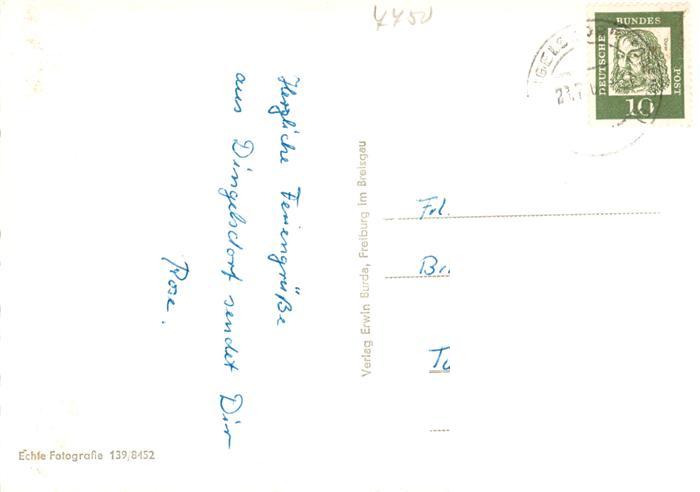 4450
DEUTSCHE
BUNDES
POST
10
Herzliche Feriengrüße
aus Dingelsdorf sendet Dir
Rose.
Verlag Erwin Burda, Freiburg im Breisgau
Frl.
Echte Fotografie 139/8452